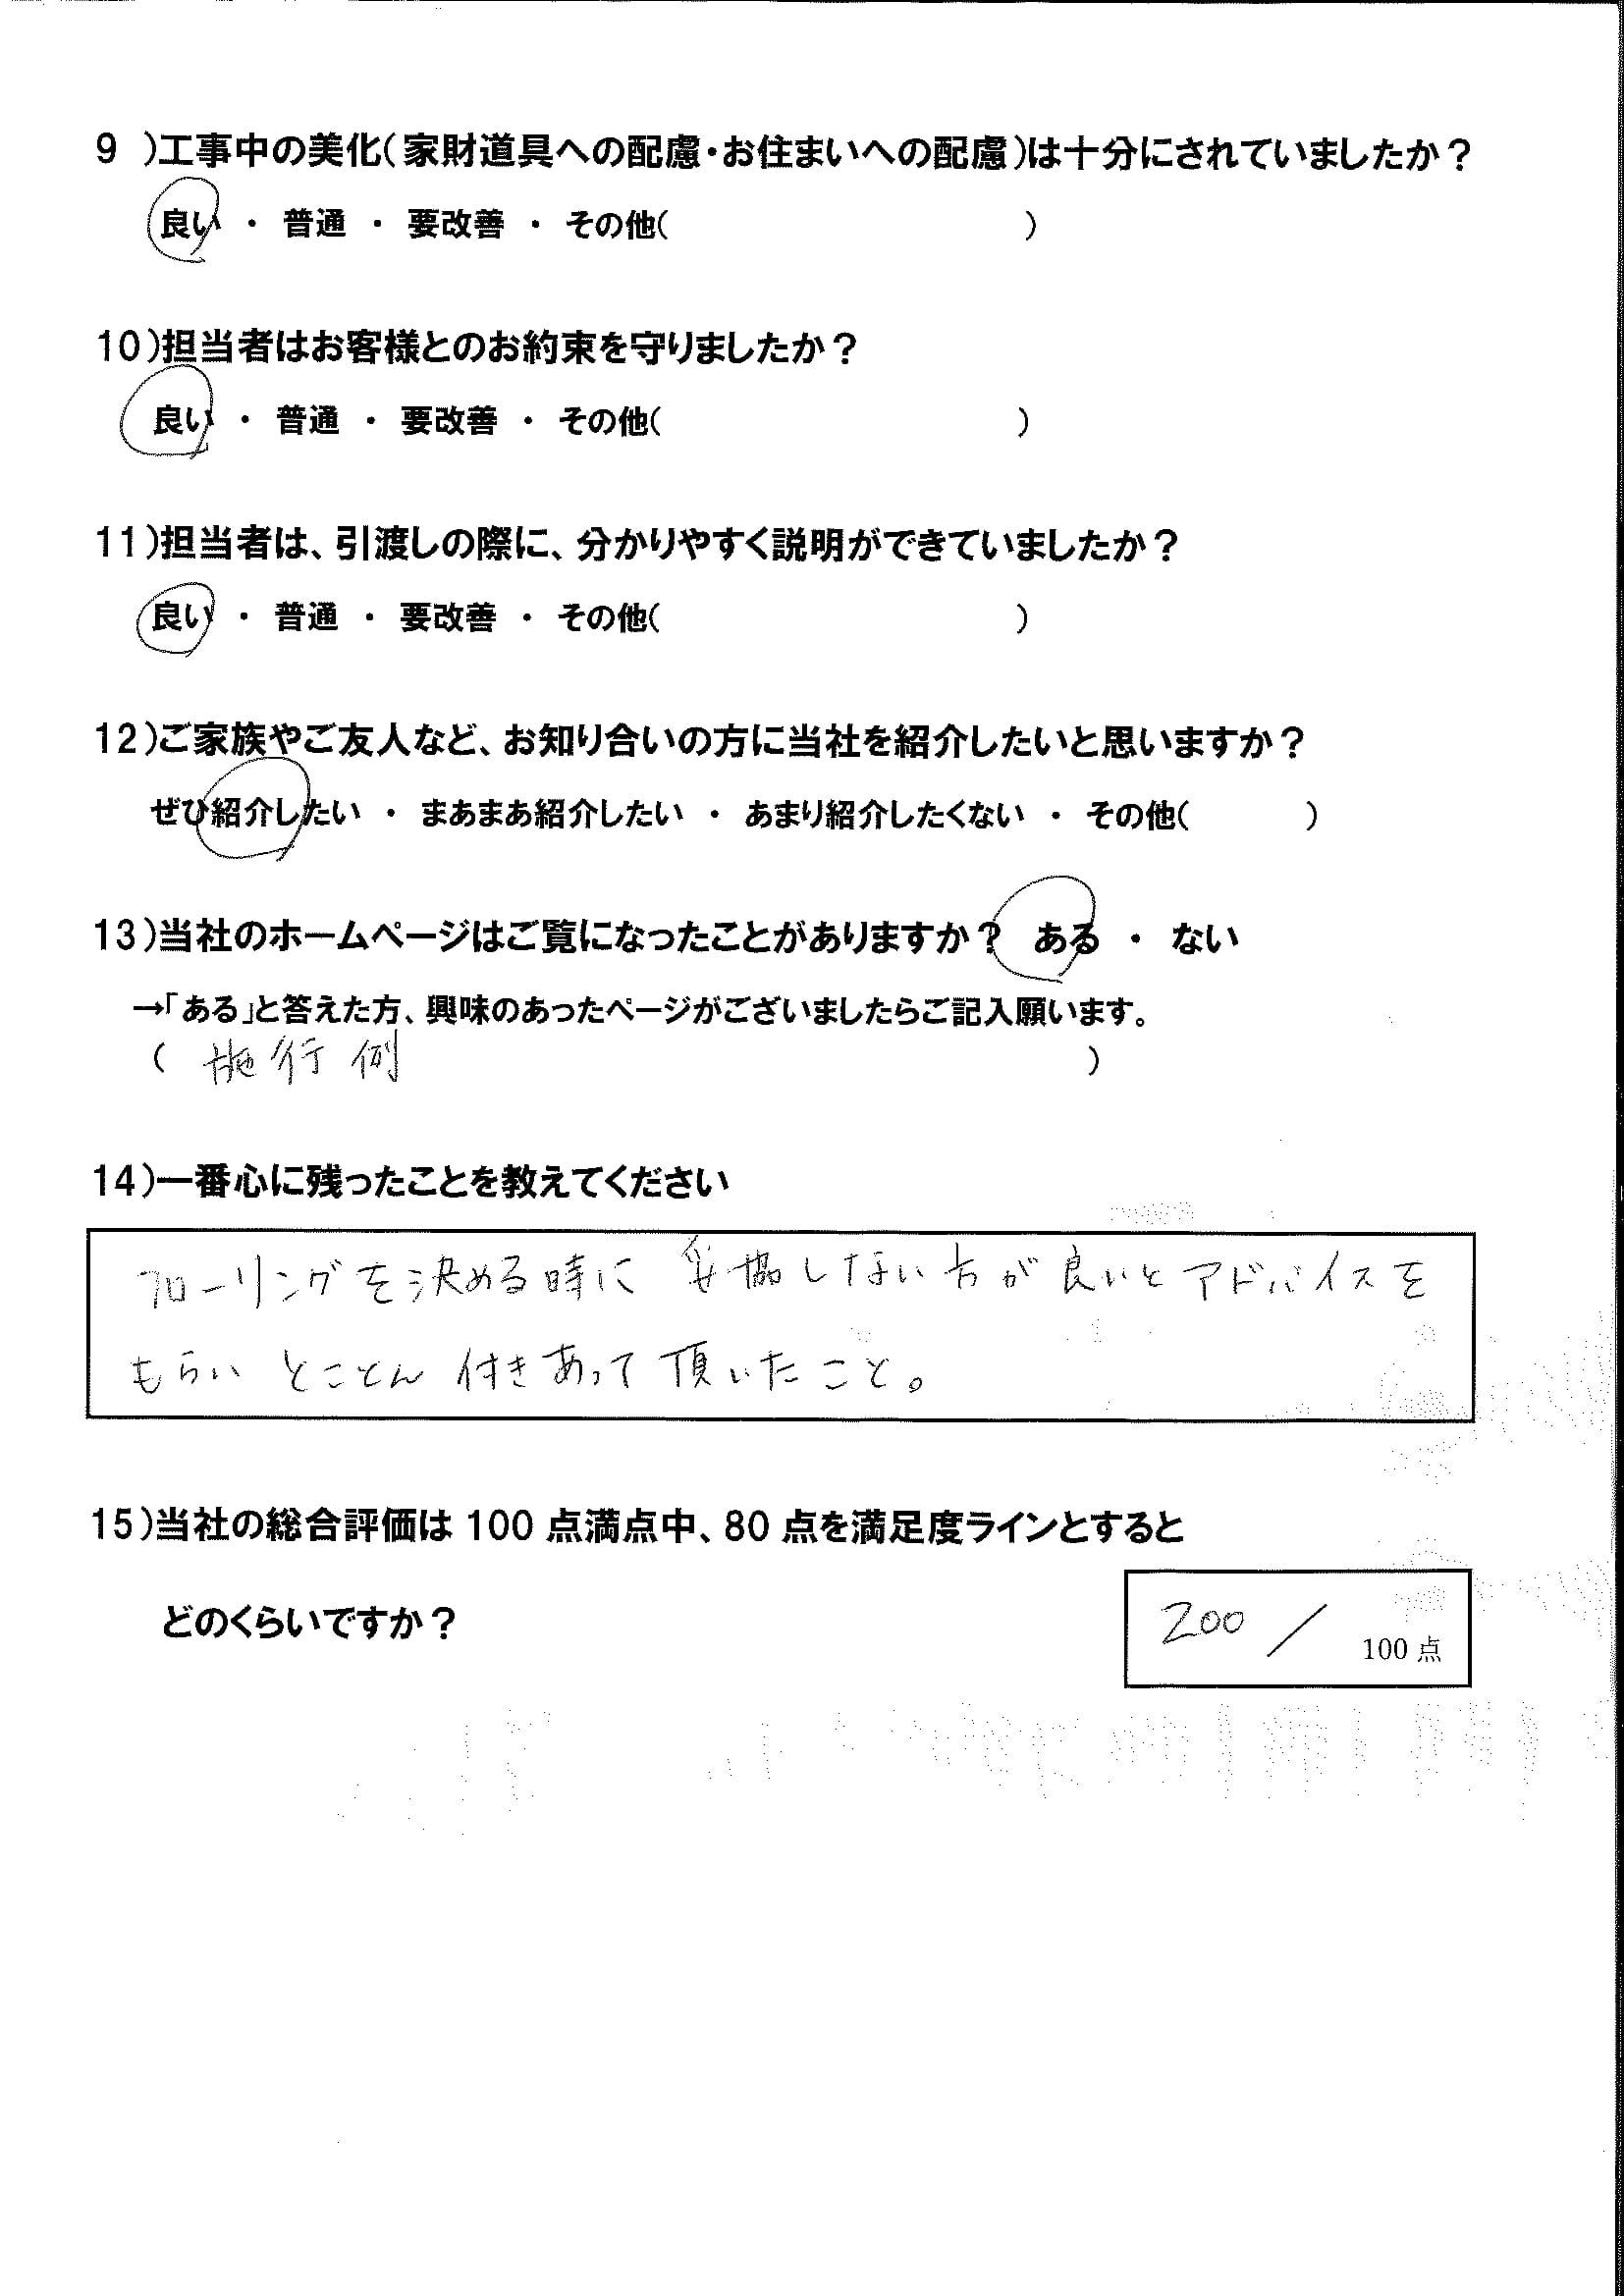 9 )工事中の美化(家財道具への配慮・お住まいへの配慮)は十分にされていましたか?
良い ・ 普通 ・ 要改善 ・ その他( )
10)担当者はお客様とのお約束を守りましたか?
良い ・ 普通 ・ 要改善 ・ その他( )
11)担当者は、引渡しの際に、分かりやすく説明ができていましたか?
良い ・ 普通 ・ 要改善 ・ その他( )
12)ご家族やご友人など、お知り合いの方に当社を紹介したいと思いますか?
ぜひ紹介したい ・ まあまあ紹介したい ・ あまり紹介したくない ・ その他( )
13)当社のホームページはご覧になったことがありますか? ある ・ ない
→「ある」と答えた方、興味のあったページがございましたらご記入願います。
( 施行例 )
14)一番心に残ったことを教えてください
フローリングを決める時に 妥協しない方が良いとアドバイスを
もらい とことん 付きあって頂いたこと。
15)当社の総合評価は 100 点満点中、80 点を満足度ラインとすると
どのくらいですか?
200 / 100 点